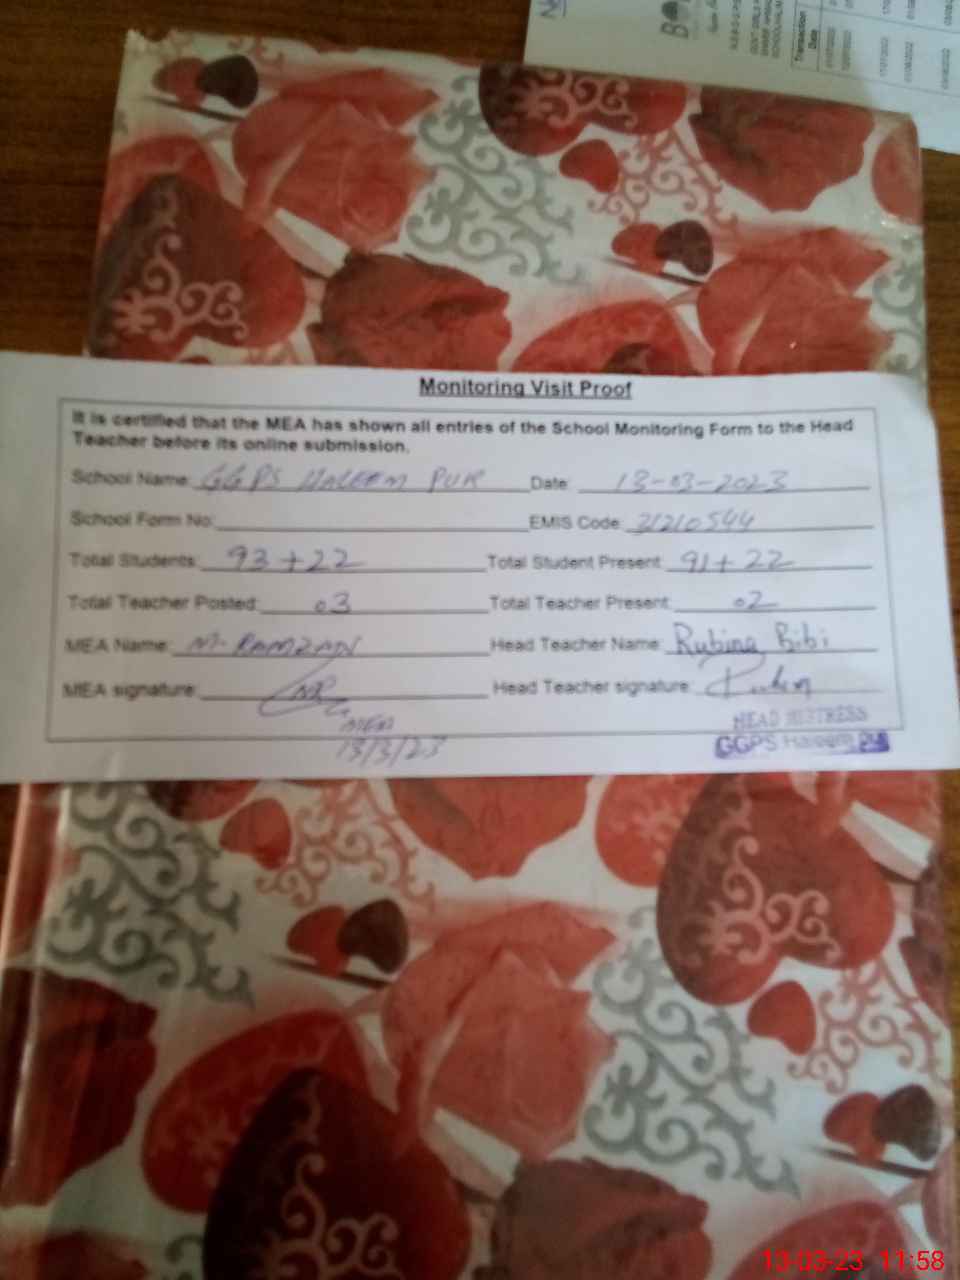 Transaction Date
Monitoring Visit Proof
It is certified that the MEA has shown all entries of the School Monitoring Form to the Head
Teacher before its online submission.
School Name: GGPS HALEEM PUR Date: 13-03-2023
School Form No: EMIS Code: 31210544
Total Students: 93+22 Total Student Present: 91+22
Total Teacher Posted: 03 Total Teacher Present: 02
MEA Name: M. RAMZAN Head Teacher Name: Rubina Bibi
MEA signature: MR Head Teacher signature:
MEA
13/3/23
HEAD MISTRESS
GGPS Haleem Pur
13-03-23 11:58